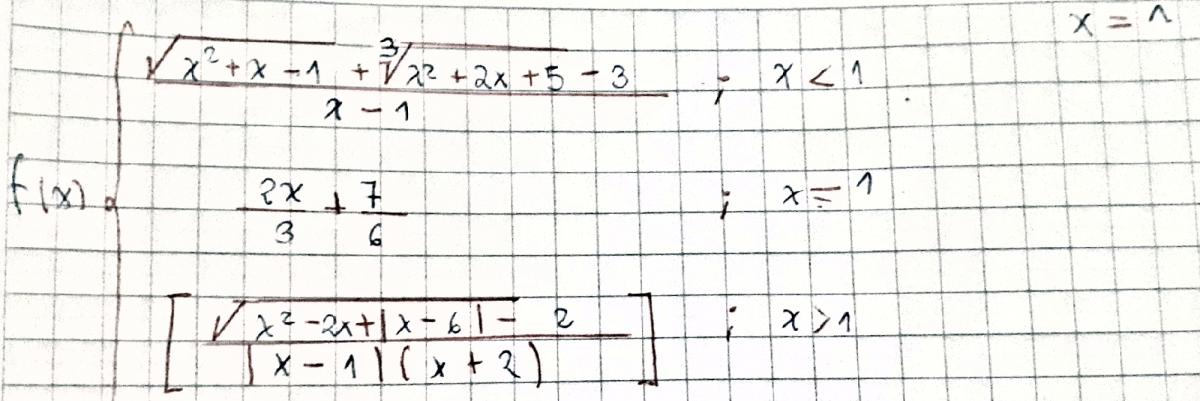 x = 1
√(x² + x - 1) + ∛(x² + 2x + 5) - 3 / x - 1 ; x < 1
f(x) = { 2x/3 + 7/6 ; x = 1
[ √(x² - 2x + |x - 6| - 2) / |x - 1| (x + 2) ] ; x > 1